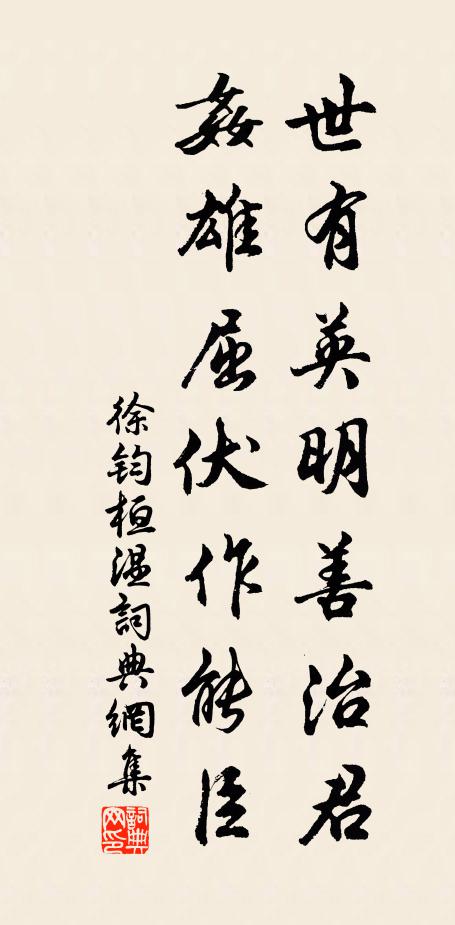 世有英明善治君
姦雄屈伏作能臣
徐鈞桓溫詞典網集
詞典网印